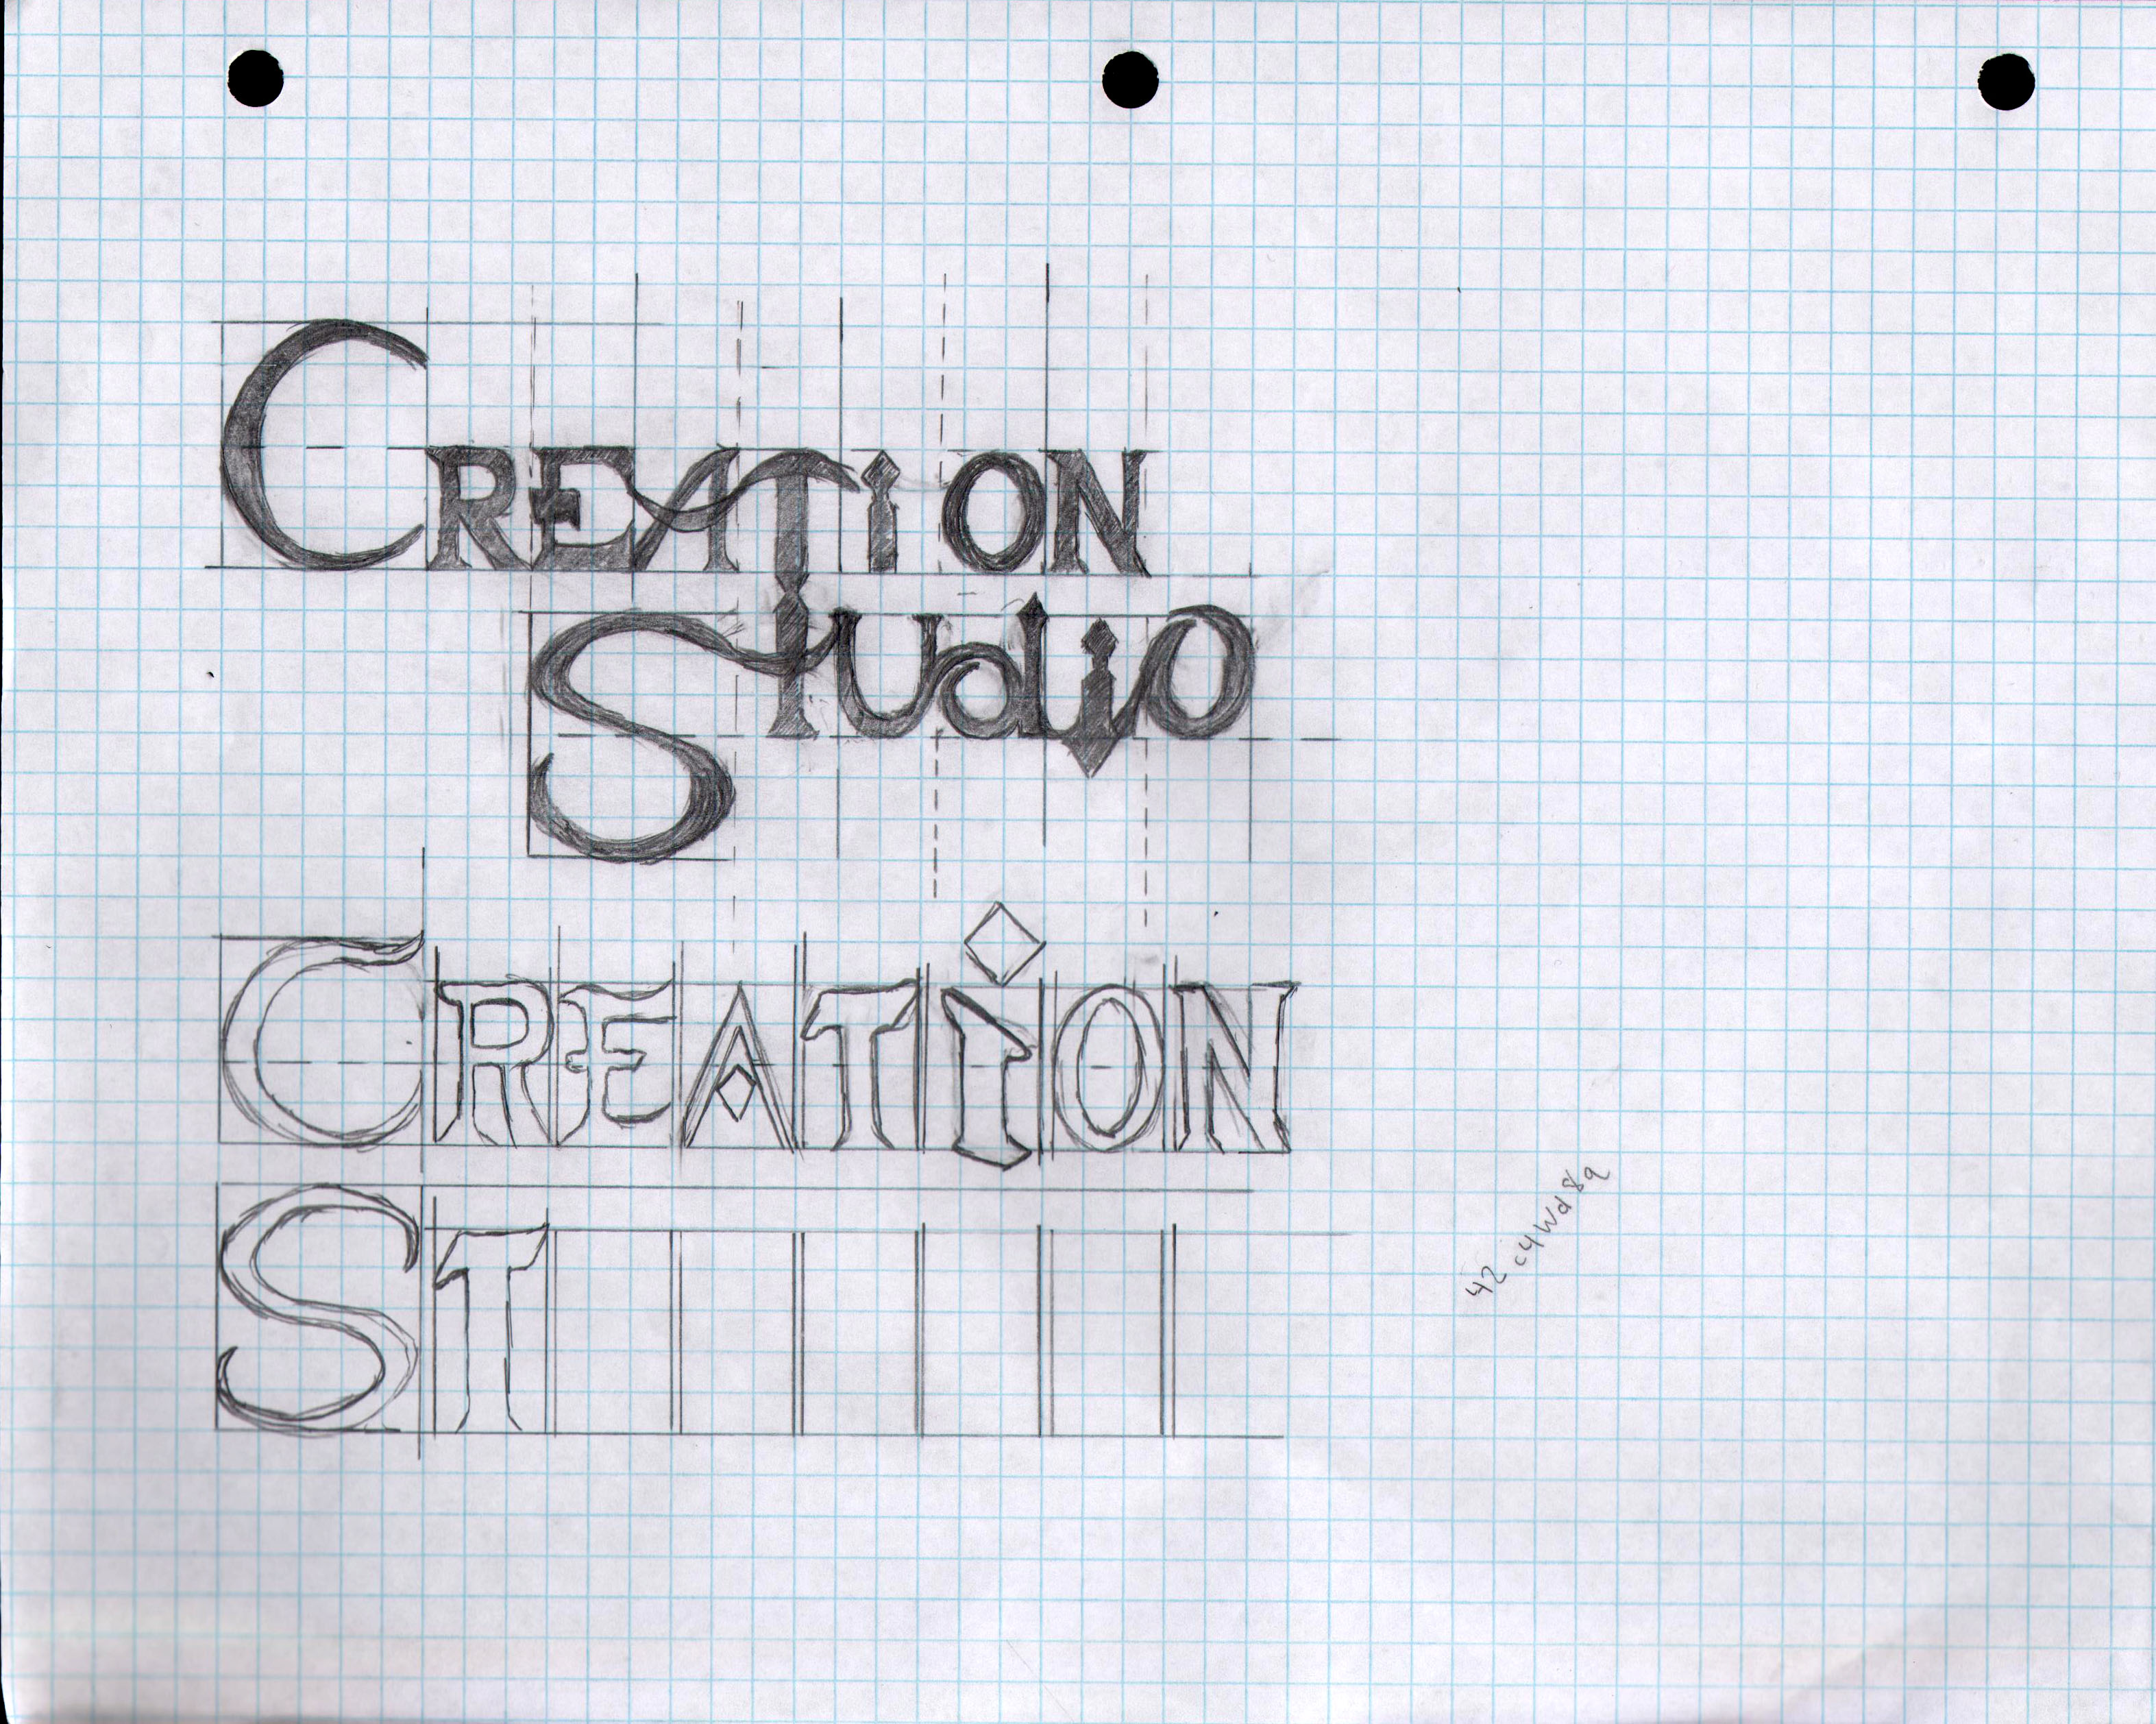 CREATiON
StudiO
CREATiON
ST
42 c4Wd8q